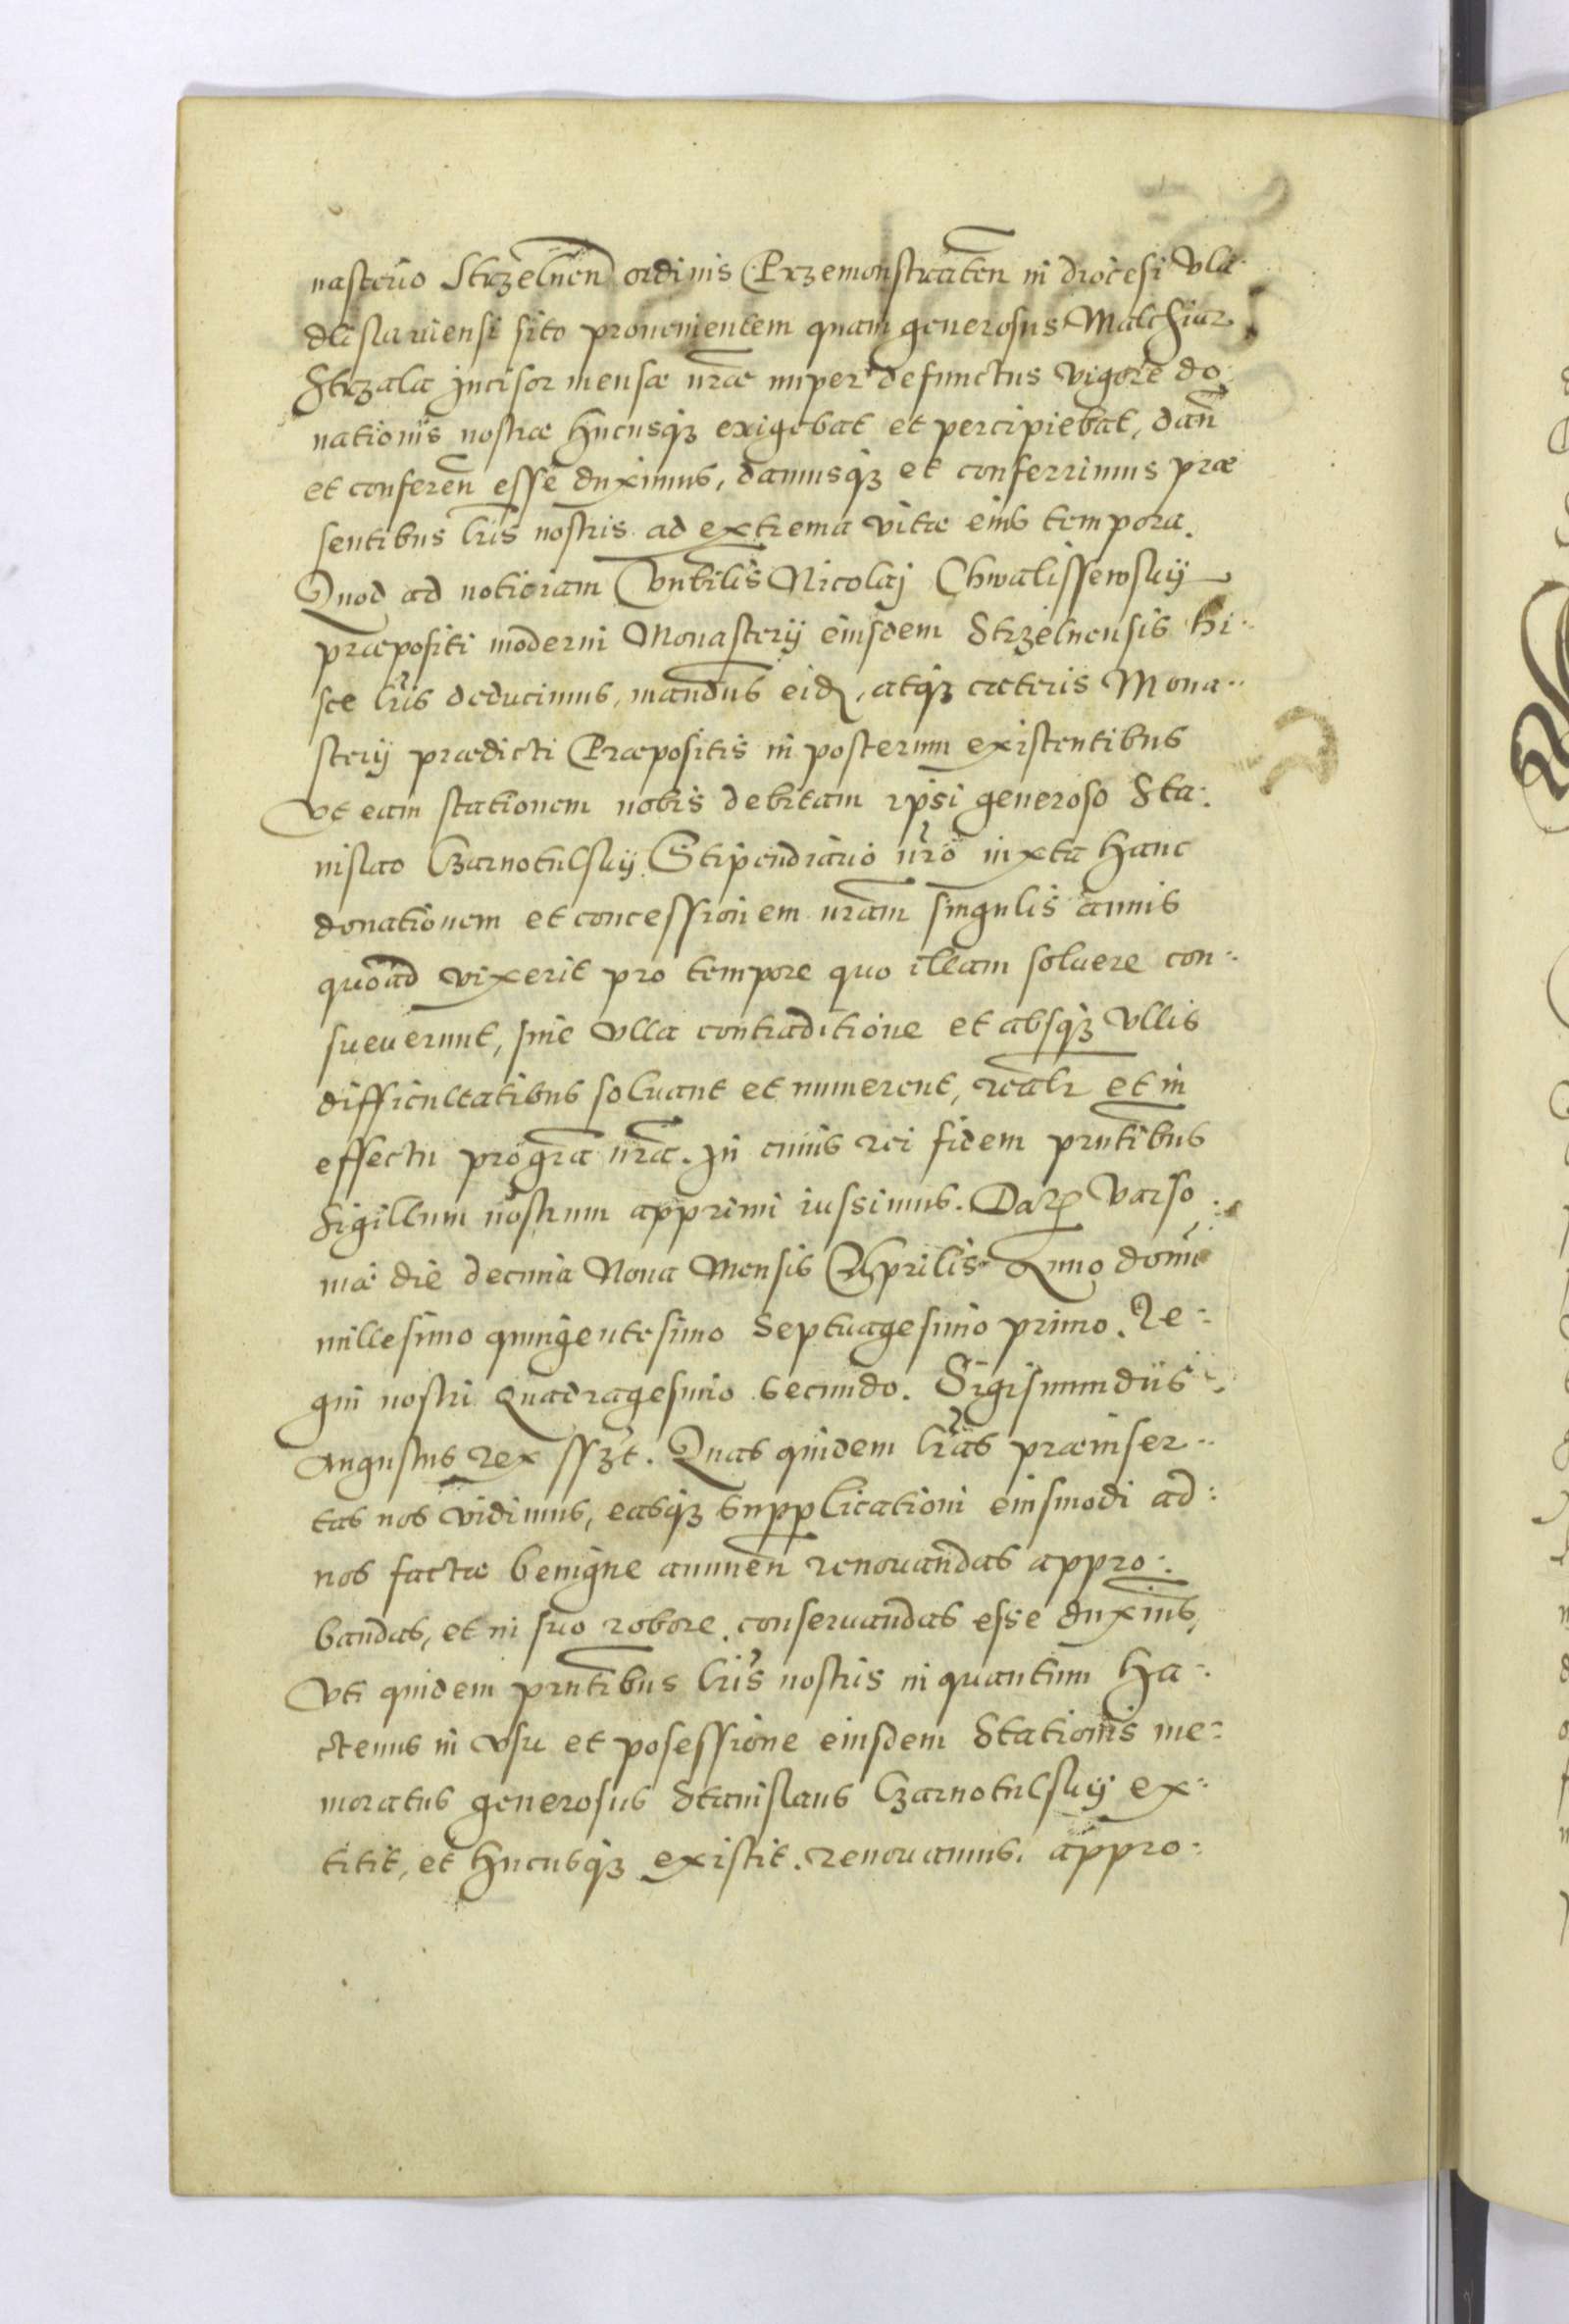 nasterio Strzelnen ordinis Przemonstraten in diocesi Vla
dislauiensi sito prouenientem quam generosus Malchiar
Strzala Incisor mensæ nræ nuper defunctus vigore do
nationis nostræ hucusqz exigebat et percipiebat, dan
et conferen esse duximus, damusqz et conferrimus præ
sentibus lris nostris ad extrema vitæ eius tempora.
Quod ad noticiam Vnbilis Nicolaj Chwalissewskij
præpositi moderni Monasterij eiusdem Strzelnensis hi
sce lris deducimus, mandus eid, atqz cæteris Mona
sterij prædicti Præpositis in posterum existentibus
Vt eam stationem nobis debitam ipsi generoso Sta:
nislao Czarnotulskij Stipendiario nro iuxta hanc
donationem et concessionem nram singulis annis
quoad vixerit pro tempore quo illam soluere con:
sueuerunt, sine vlla contraditione et absqz vllis
difficultatibus soluant et numerent, realr et in
effectu pro gra nra. In cuius rei fidem prntibus
Sigillum nostrum apprimi iussimus. Dat Varso:
uiæ die decima Nona Mensis Aprilis Anno domi
millesimo quingentesimo Septuagesimo primo. Re:
gni nostri Quadragesimo secundo. Sigismundus
Augustus Rex sszt. Quas quidem lras præinser
tas nos vidimus, easqz supplicationi eiusmodi ad:
nos factæ benigne annuen renouandas appro:
bandas, et in suo robore conseruandas esse duximus,
Vti quidem prntibus lris nostris in quantum ha:
ctenus in vsu et posessione eiusdem Stationis me:
moratus generosus Stanislaus Czarnotulskij ex:
titit, et hucusqz existit. renouamus. appro: